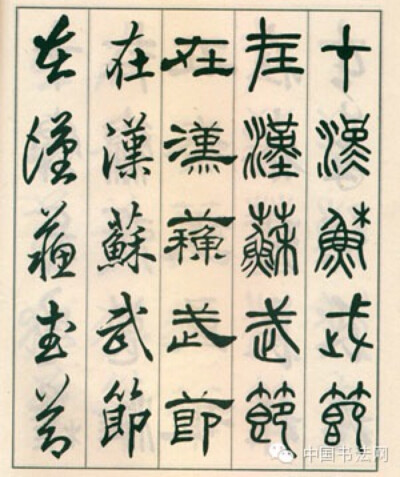 在漢蘇武節
在漢蘇武節
在漢蘇武節
在漢蘇武節
在漢蘇武節
中国书法网